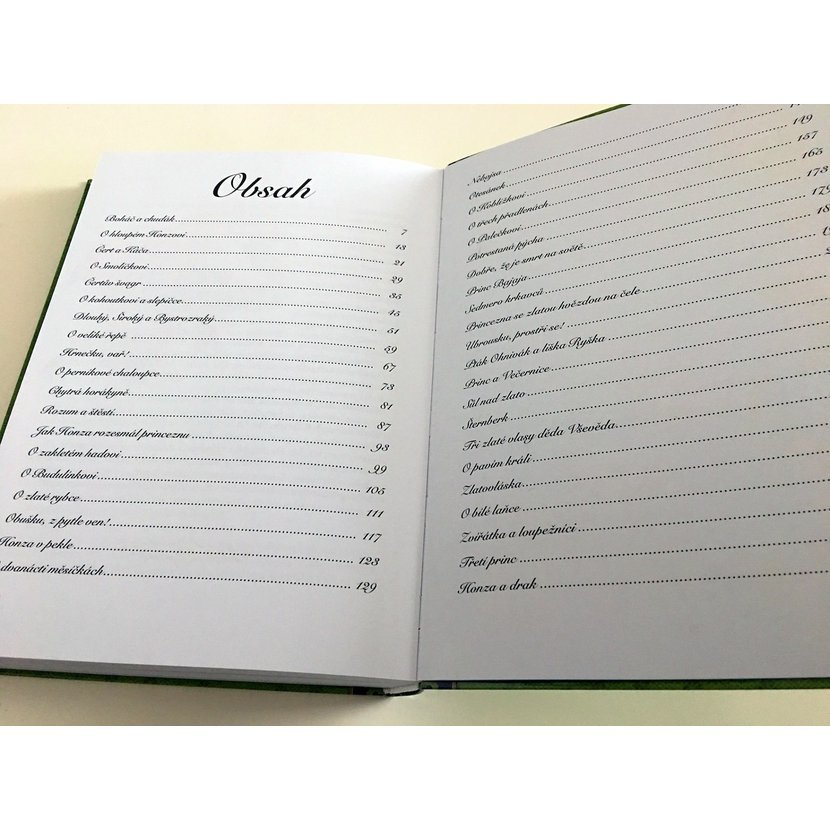 Obsah
Boháč a chudák 7
O hloupém Honzovi 13
Čert a Káča 21
O Smolíčkovi 29
Čertův švagr 35
O kohoutkovi a slepičce 45
Dlouhý, Široký a Bystrozraký 51
O veliké řepě 59
Hrnečku, vař! 67
O perníkové chaloupce 73
Chytrá horákyně 81
Rozum a štěstí 87
Jak Honza rozesmál princeznu 93
O zakletém hadovi 99
O Budulínkovi 105
O zlaté rybce 111
Obušku, z pytle ven! 117
Honza v pekle 123
dvanácti měsíčkách 129
Nebojsa
Otesánek 149
O Koblížkovi 157
O třech přadlenách 165
O Palečkovi 173
Potrestaná pýcha 179
Dobře, že je smrt na světě
Princ Bajaja
Sedmero krkavců
Princezna se zlatou hvězdou na čele
Ubrousku, prostři se!
Pták Ohnivák a liška Ryška
Princ a Večernice
Sůl nad zlato
Šternberk
Tři zlaté vlasy děda Vševěda
O pavím králi
Zlatovláska
O bílé laňce
Zvířátka a loupežníci
Třetí princ
Honza a drak